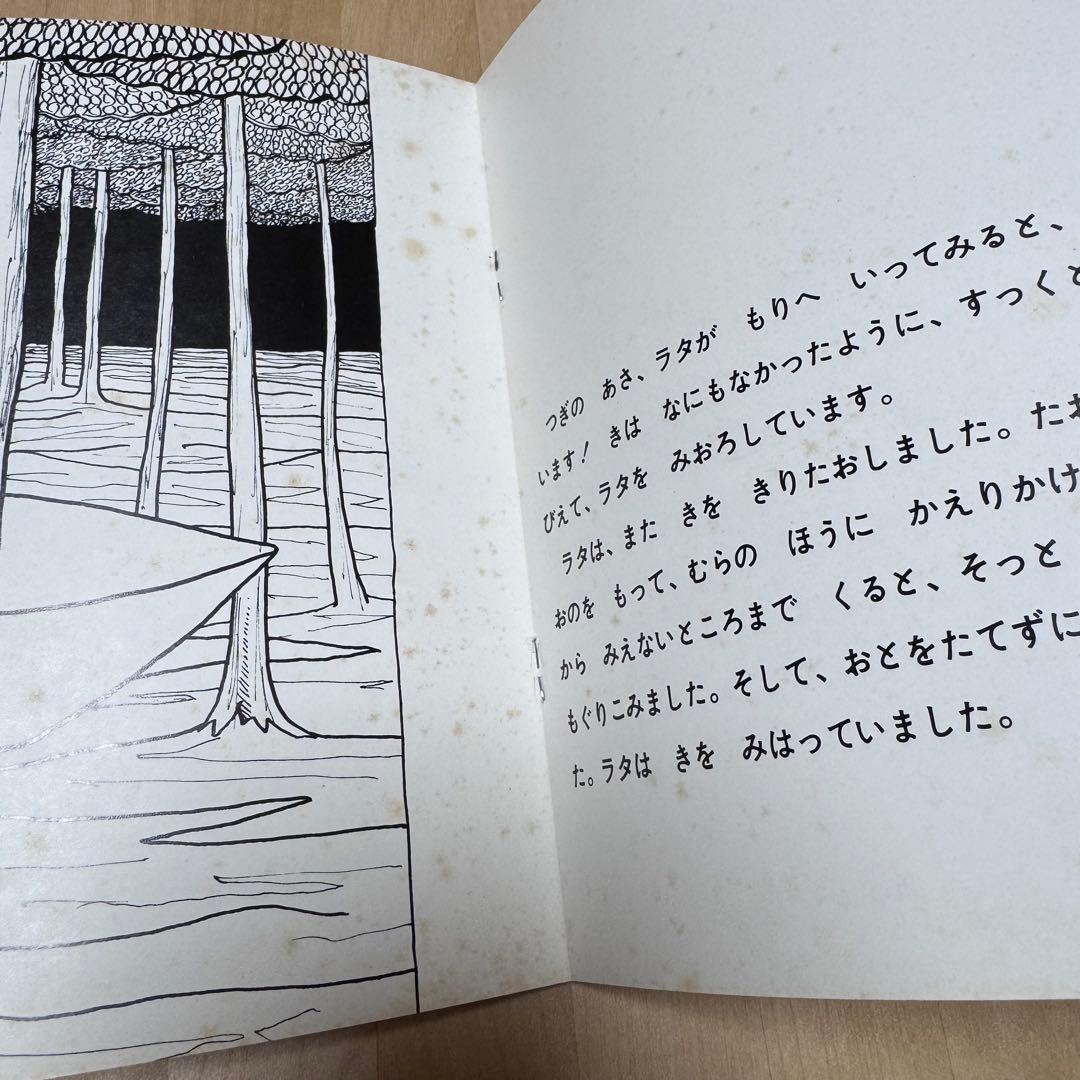 つぎの あさ、ラタが もりへ いってみると、
います! きは なにもなかったように、すっくと
びえて、ラタを みおろしています。
ラタは、また きを きりたおしました。たお
おのを もって、むらの ほうに かえりかけ
から みえないところまで くると、そっと
もぐりこみました。そして、おとをたてずに
た。ラタは きを みはっていました。